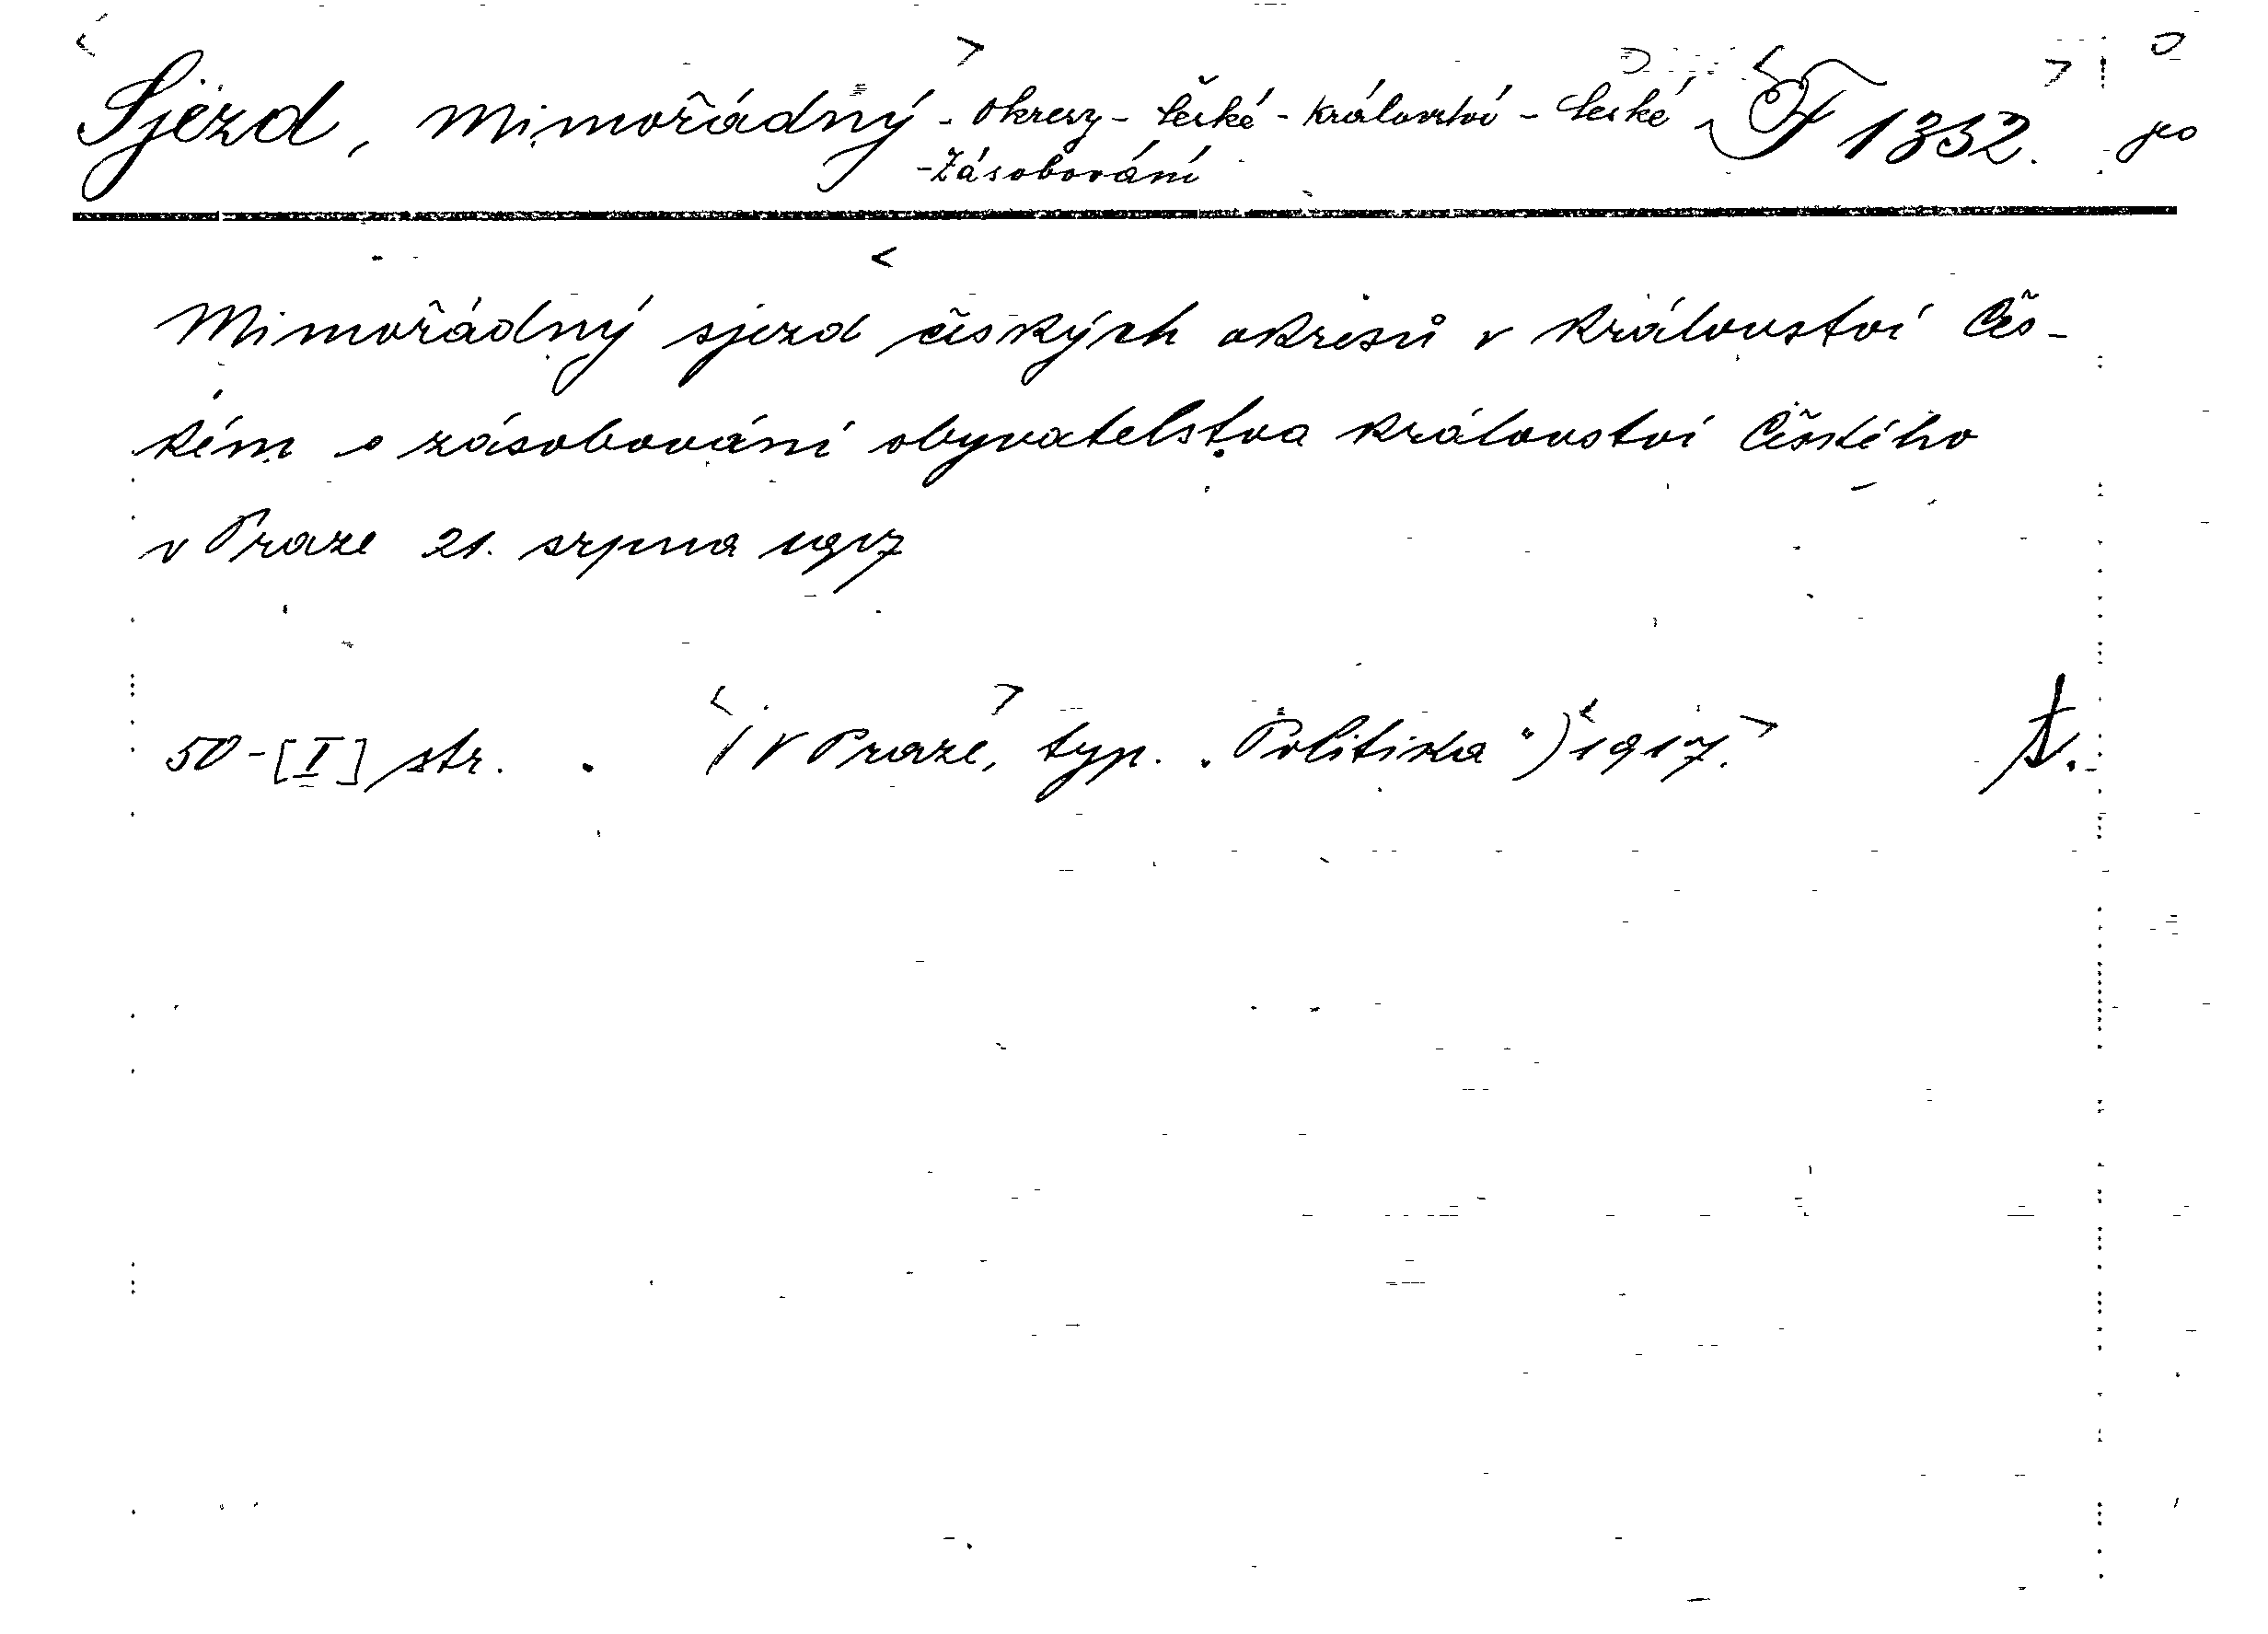 Sjezd, mimořádný - Okresy - České - Království - České F 1352. po
- Zásobování
Mimořádný sjezd českých okresů v království Čes-
kém o zásobování obyvatelstva království Českého
v Praze 21. srpna 1917
50-[I] str. (V Praze, typ. „Politika“) 1917.